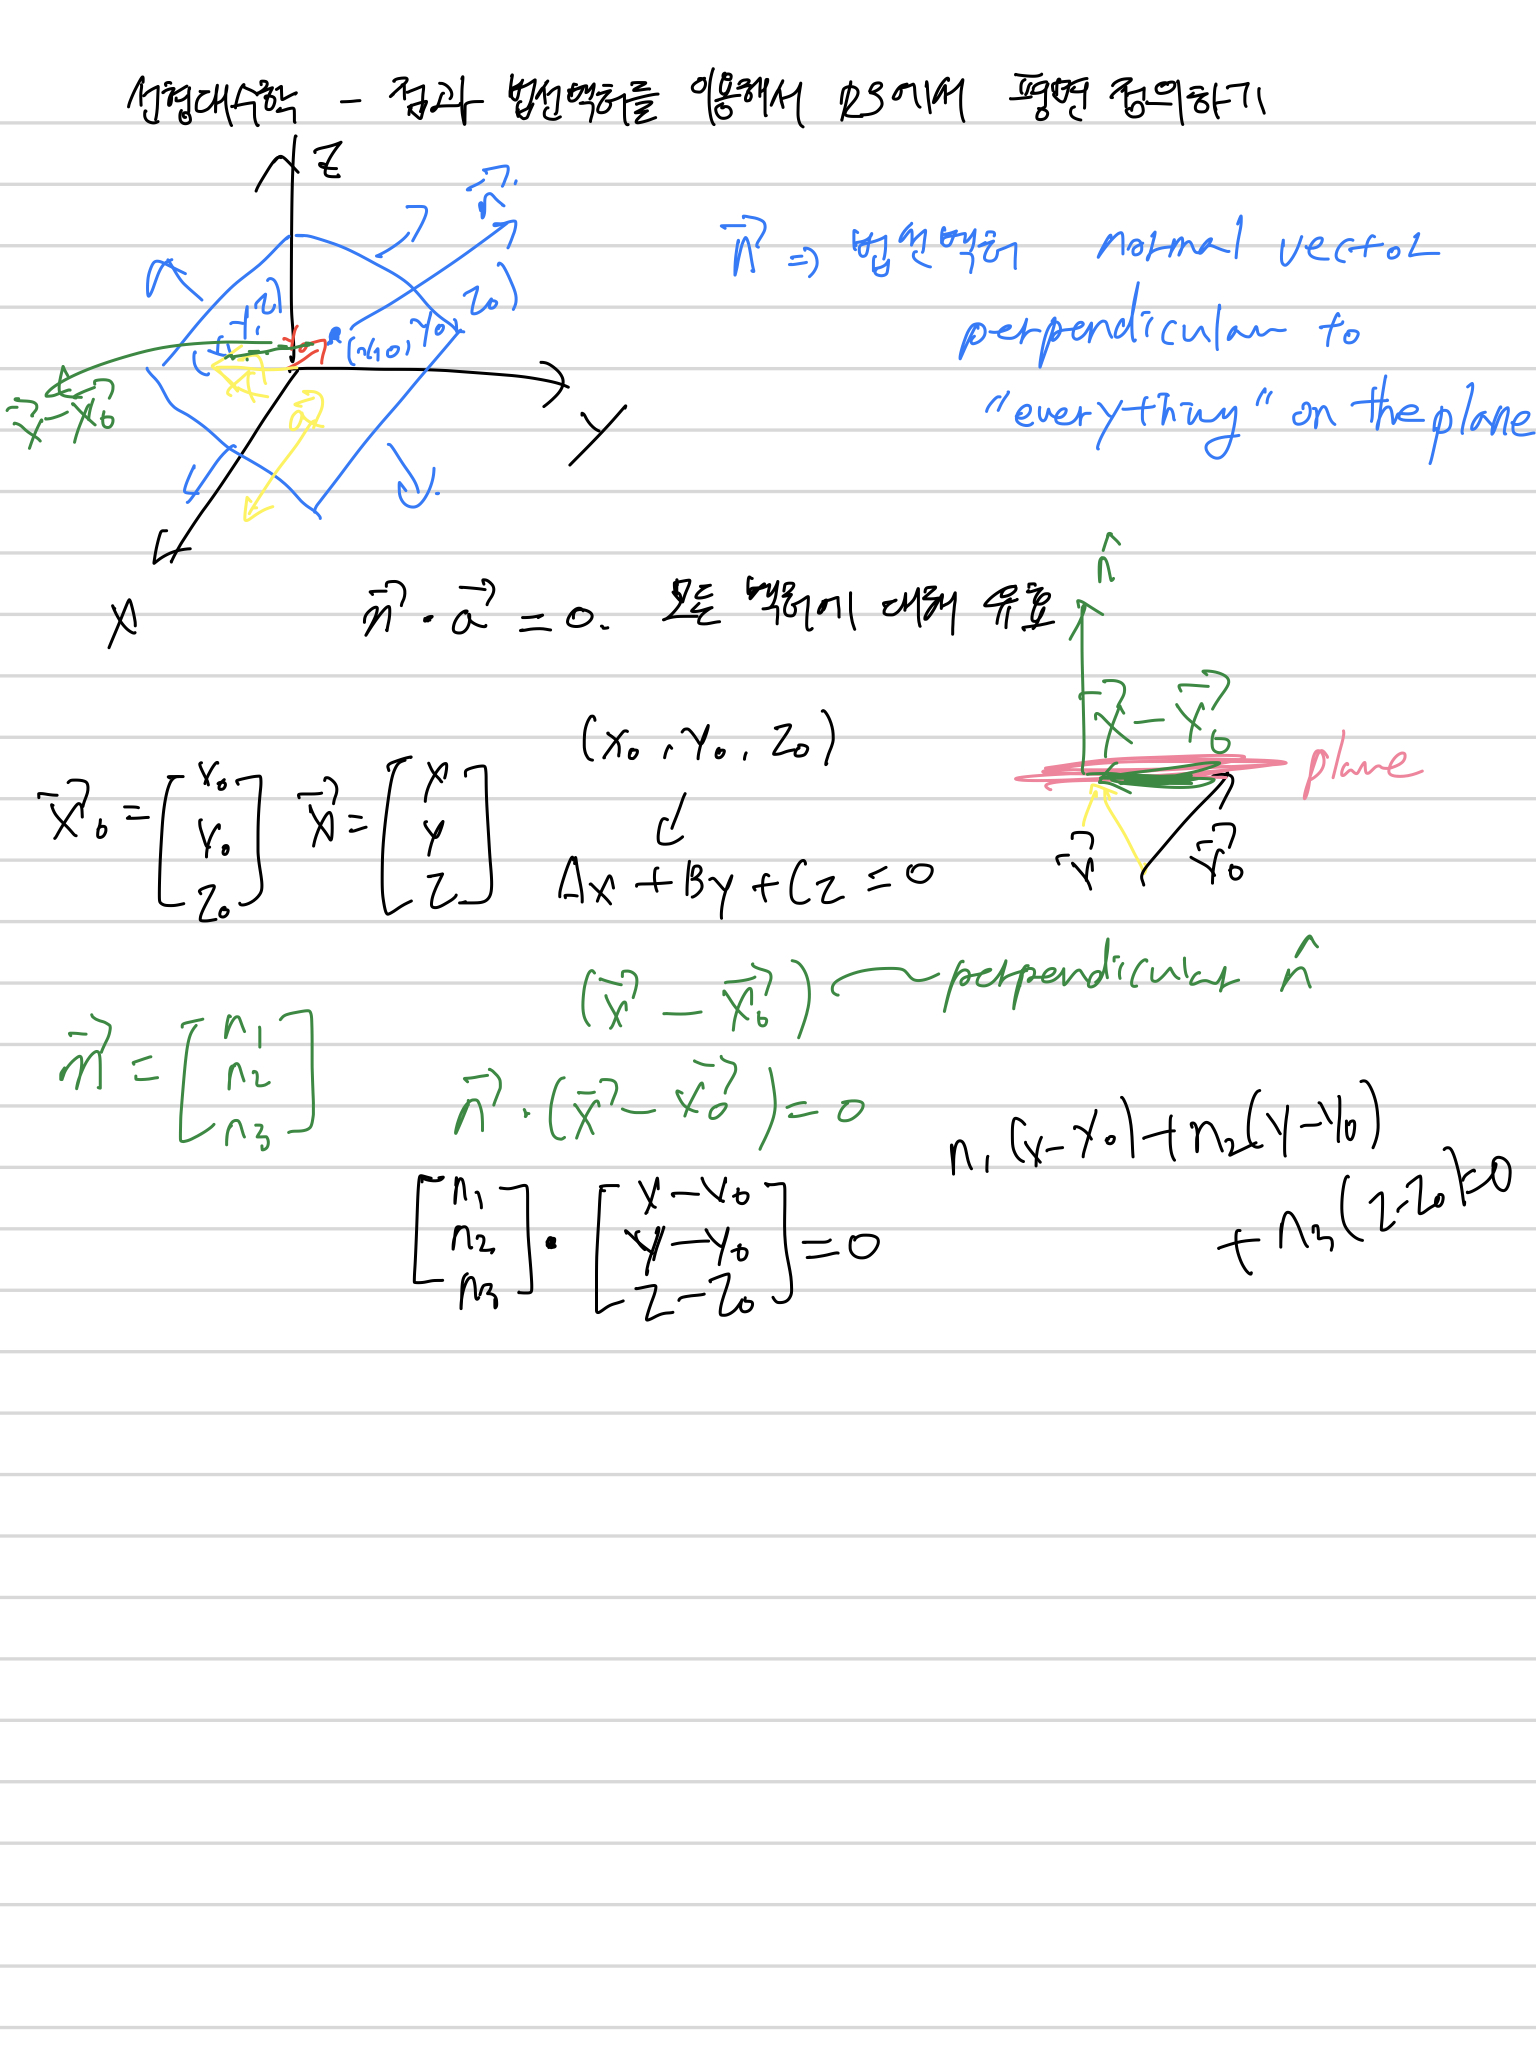 선형대수학 - 점과 법선벡터를 이용해서 R3에서 평면 정의하기
Z
n⃗
n⃗ ⇒ 법선벡터 normal vector
perpendicular to
"everything" on the plane
(x, y, z)
(x0, y0, z0)
x⃗
a⃗
x⃗ - x⃗0
Y
X
n⃗ · a⃗ = 0. 모든 벡터에 대해 유효
n̂
x⃗ - x⃗0
plane
x⃗
x⃗0
(x0, y0, z0)
x⃗0 = [x0 y0 z0] x⃗ = [x y z]
Ax + By + Cz = 0
(x⃗ - x⃗0) perpendicular n̂
n⃗ = [n1 n2 n3]
n⃗ · (x⃗ - x⃗0) = 0
[n1 n2 n3] · [x - x0 y - y0 z - z0] = 0
n1(x - x0) + n2(y - y0)
+ n3(z - z0) = 0